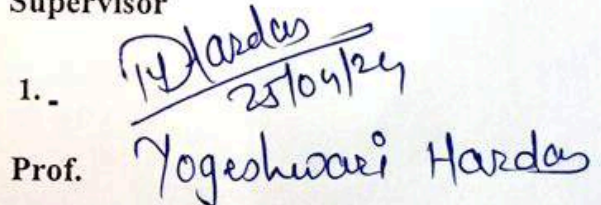 Supervisor
1.- YHardas
25/04/24
Prof. Yogeshwari Hardas